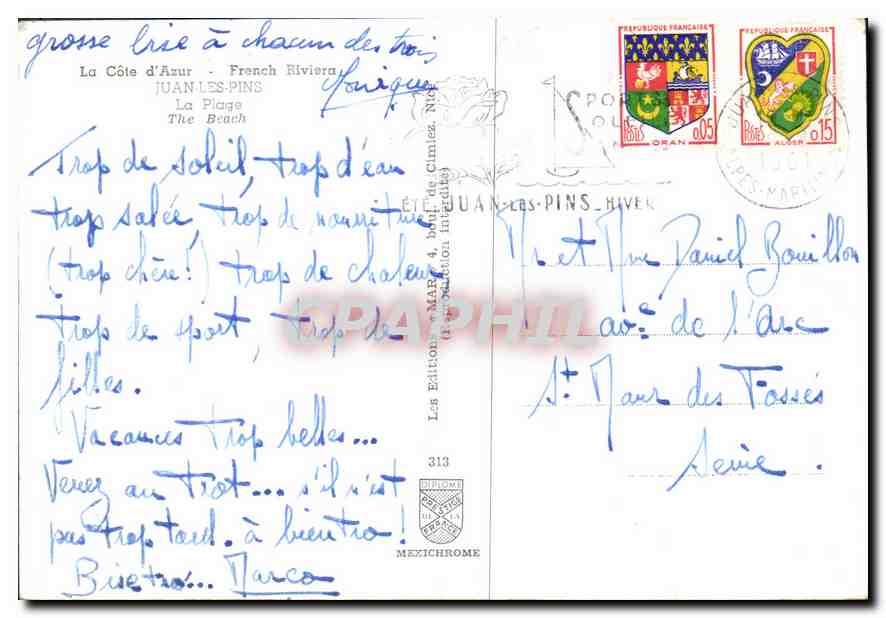 grosse bise à chacun des trois
Monique
La Côte d'Azur - French Riviera
JUAN-LES-PINS
La Plage
The Beach
Trop de soleil, trop d'eau
trop salée, trop de nourriture
(trop chère!) trop de chaleur
trop de sport, trop de
filles.
Vacances trop belles...
Venez au trot... s'il n'est
pas trop tard. à bientro!
Bisetro... Marco
Les Editions « MAR », 4, boul. de Cimiez, Nice
(Reproduction interdite)
313
DIPLOME
PRESTIGE
DE LA
FRANCE
MEXICHROME
REPUBLIQUE FRANÇAISE
POSTES 0,05
ORAN
REPUBLIQUE FRANÇAISE
POSTES 0,15
ALGER
JUAN
ALPES-MARITIMES
ÉTÉ JUAN-LES-PINS_HIVER
Mr et Mme Daniel Bouillon
av.e de l'Arc
St Maur des Fossés
Seine.
CPAPHIL